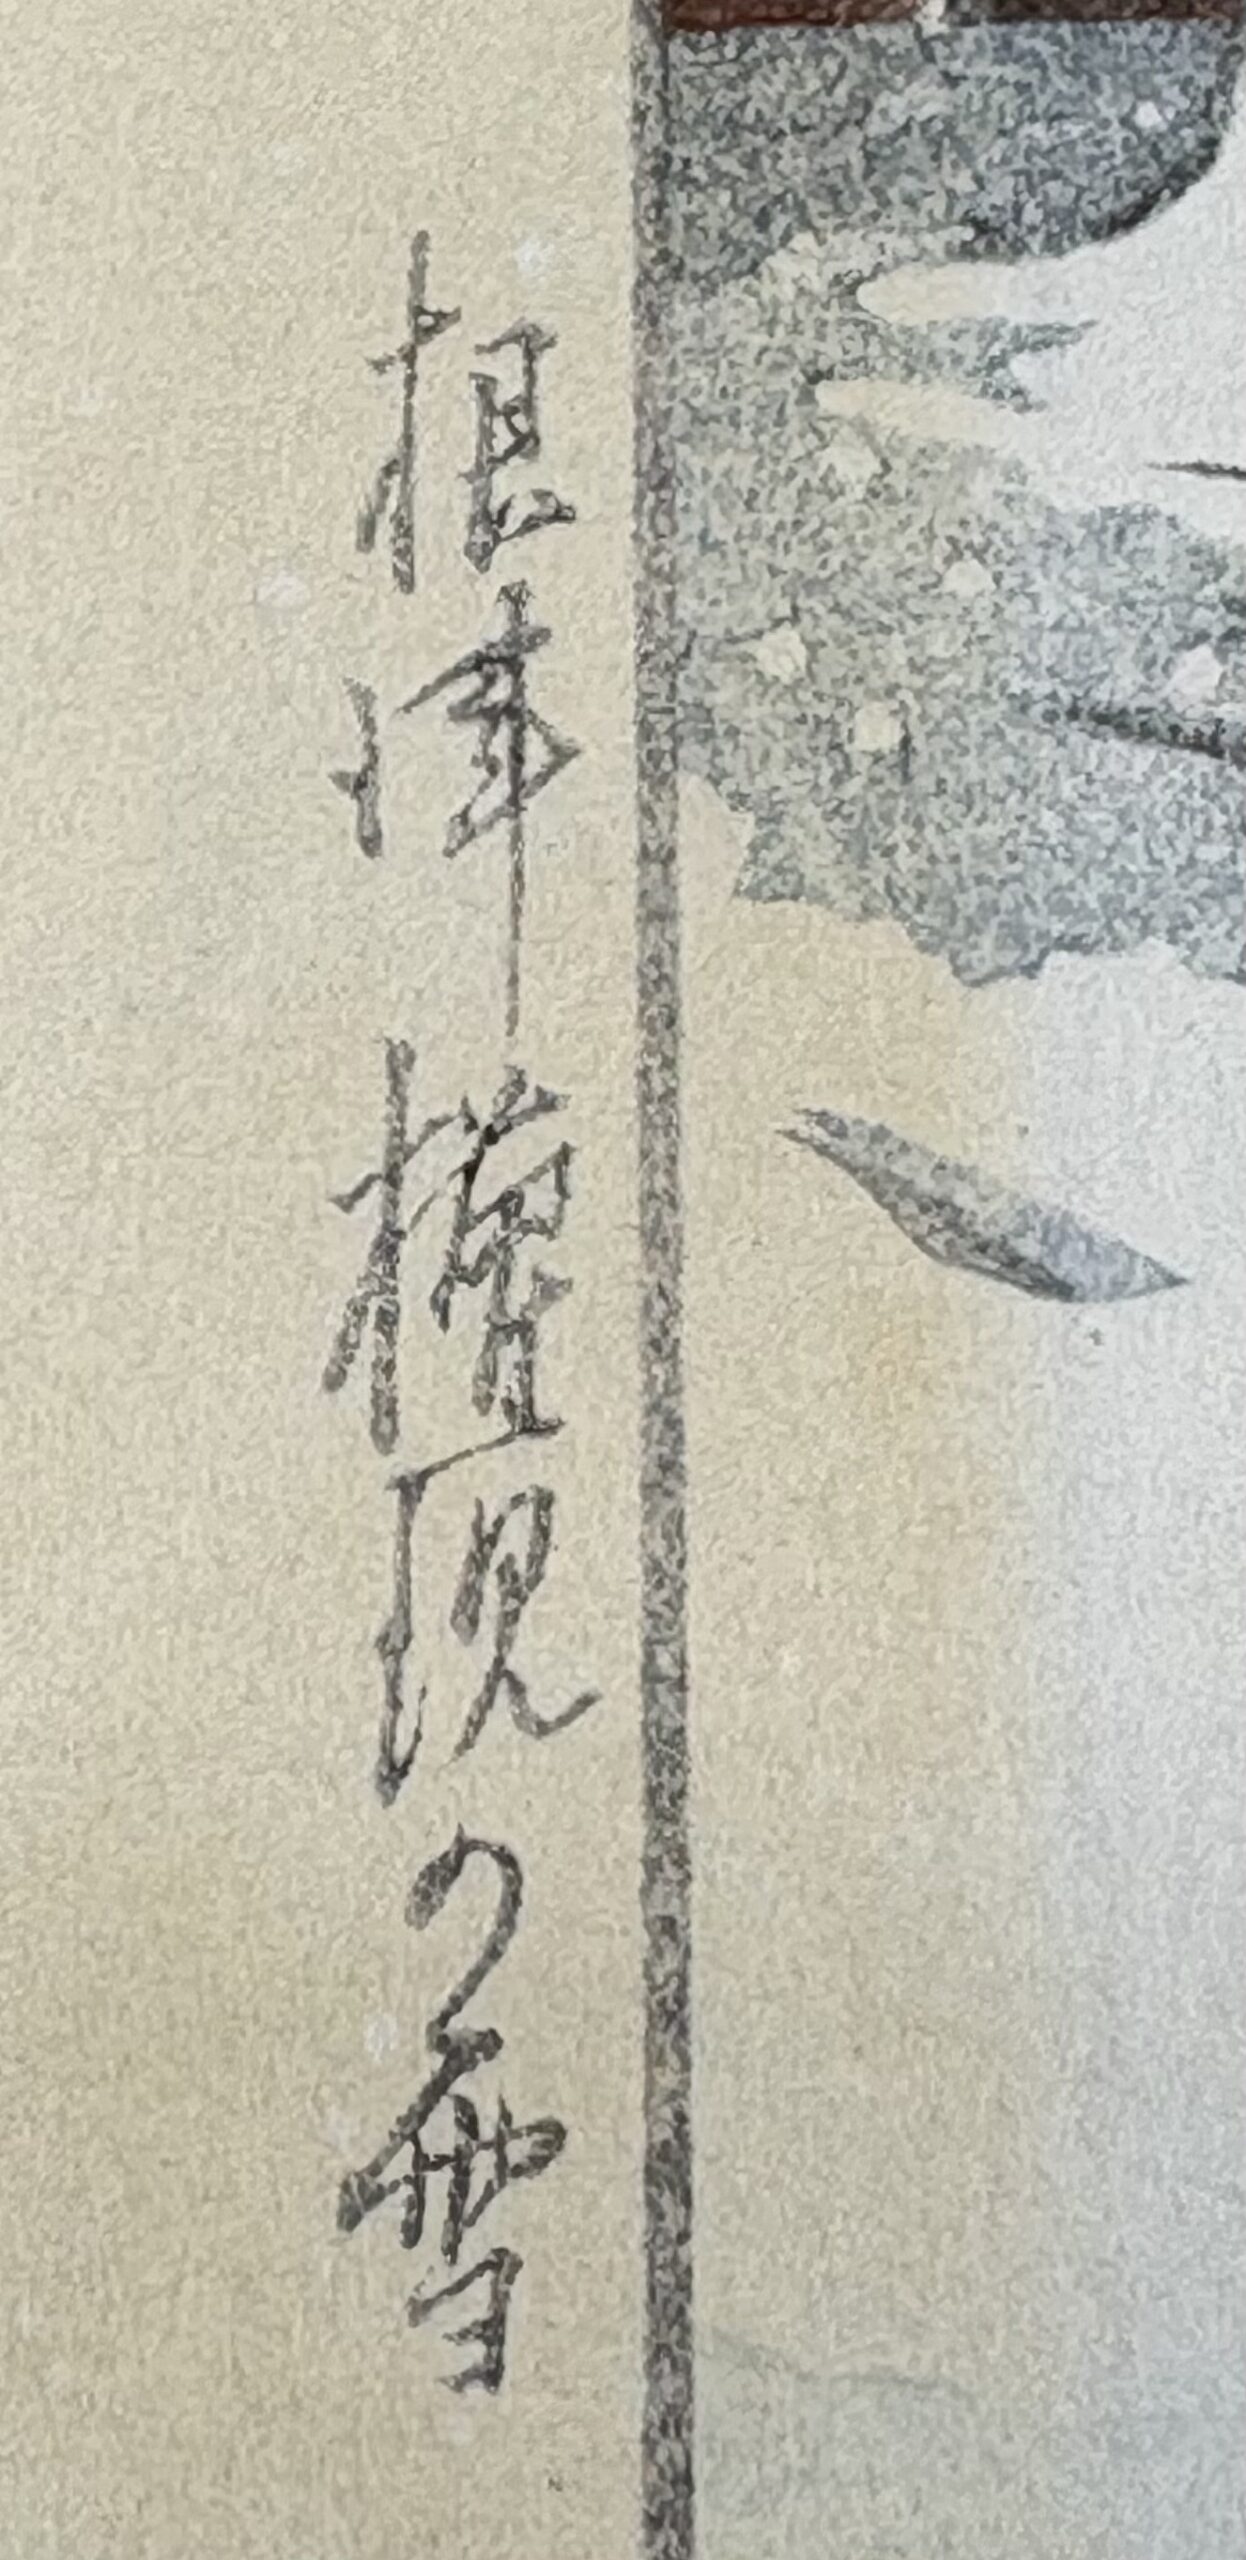 根津権現の雪